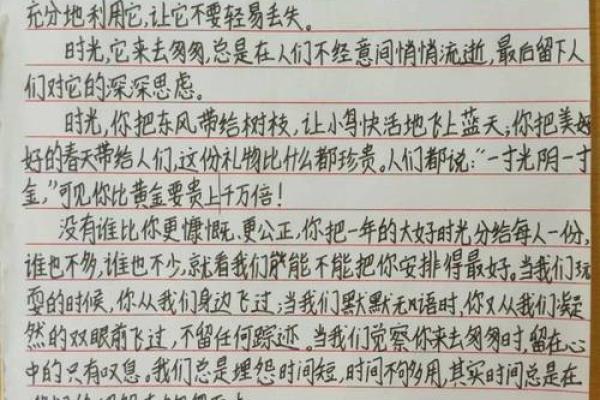 充分地利用它,让它不要轻易丢失。
时光,它来去匆匆,总是在人们不经意间悄悄流逝,最后留下人
们对它的深深思虑。
时光,你把东风带给树枝,让小鸟快活地飞上蓝天;你把美好
好的春天带给人们,这份礼物比什么都珍贵。人们都说:“一寸光阴一寸
金,”可见你比黄金要贵上千万倍!
没有谁比你更慷慨、更公正,你把一年的大好时光分给每人一份,
谁也不多,谁也不少,就看我们能能不能把你安排得最好。当我们玩
耍的时候,你从我们身边飞过;当我们默默无语时,你又从我们凝
然的双眼前飞过,不留任何踪迹。当我们觉察你来去匆匆时,留在心
中的只有叹息。我们总是埋怨时间短,时间不够多用,其实时间总是在